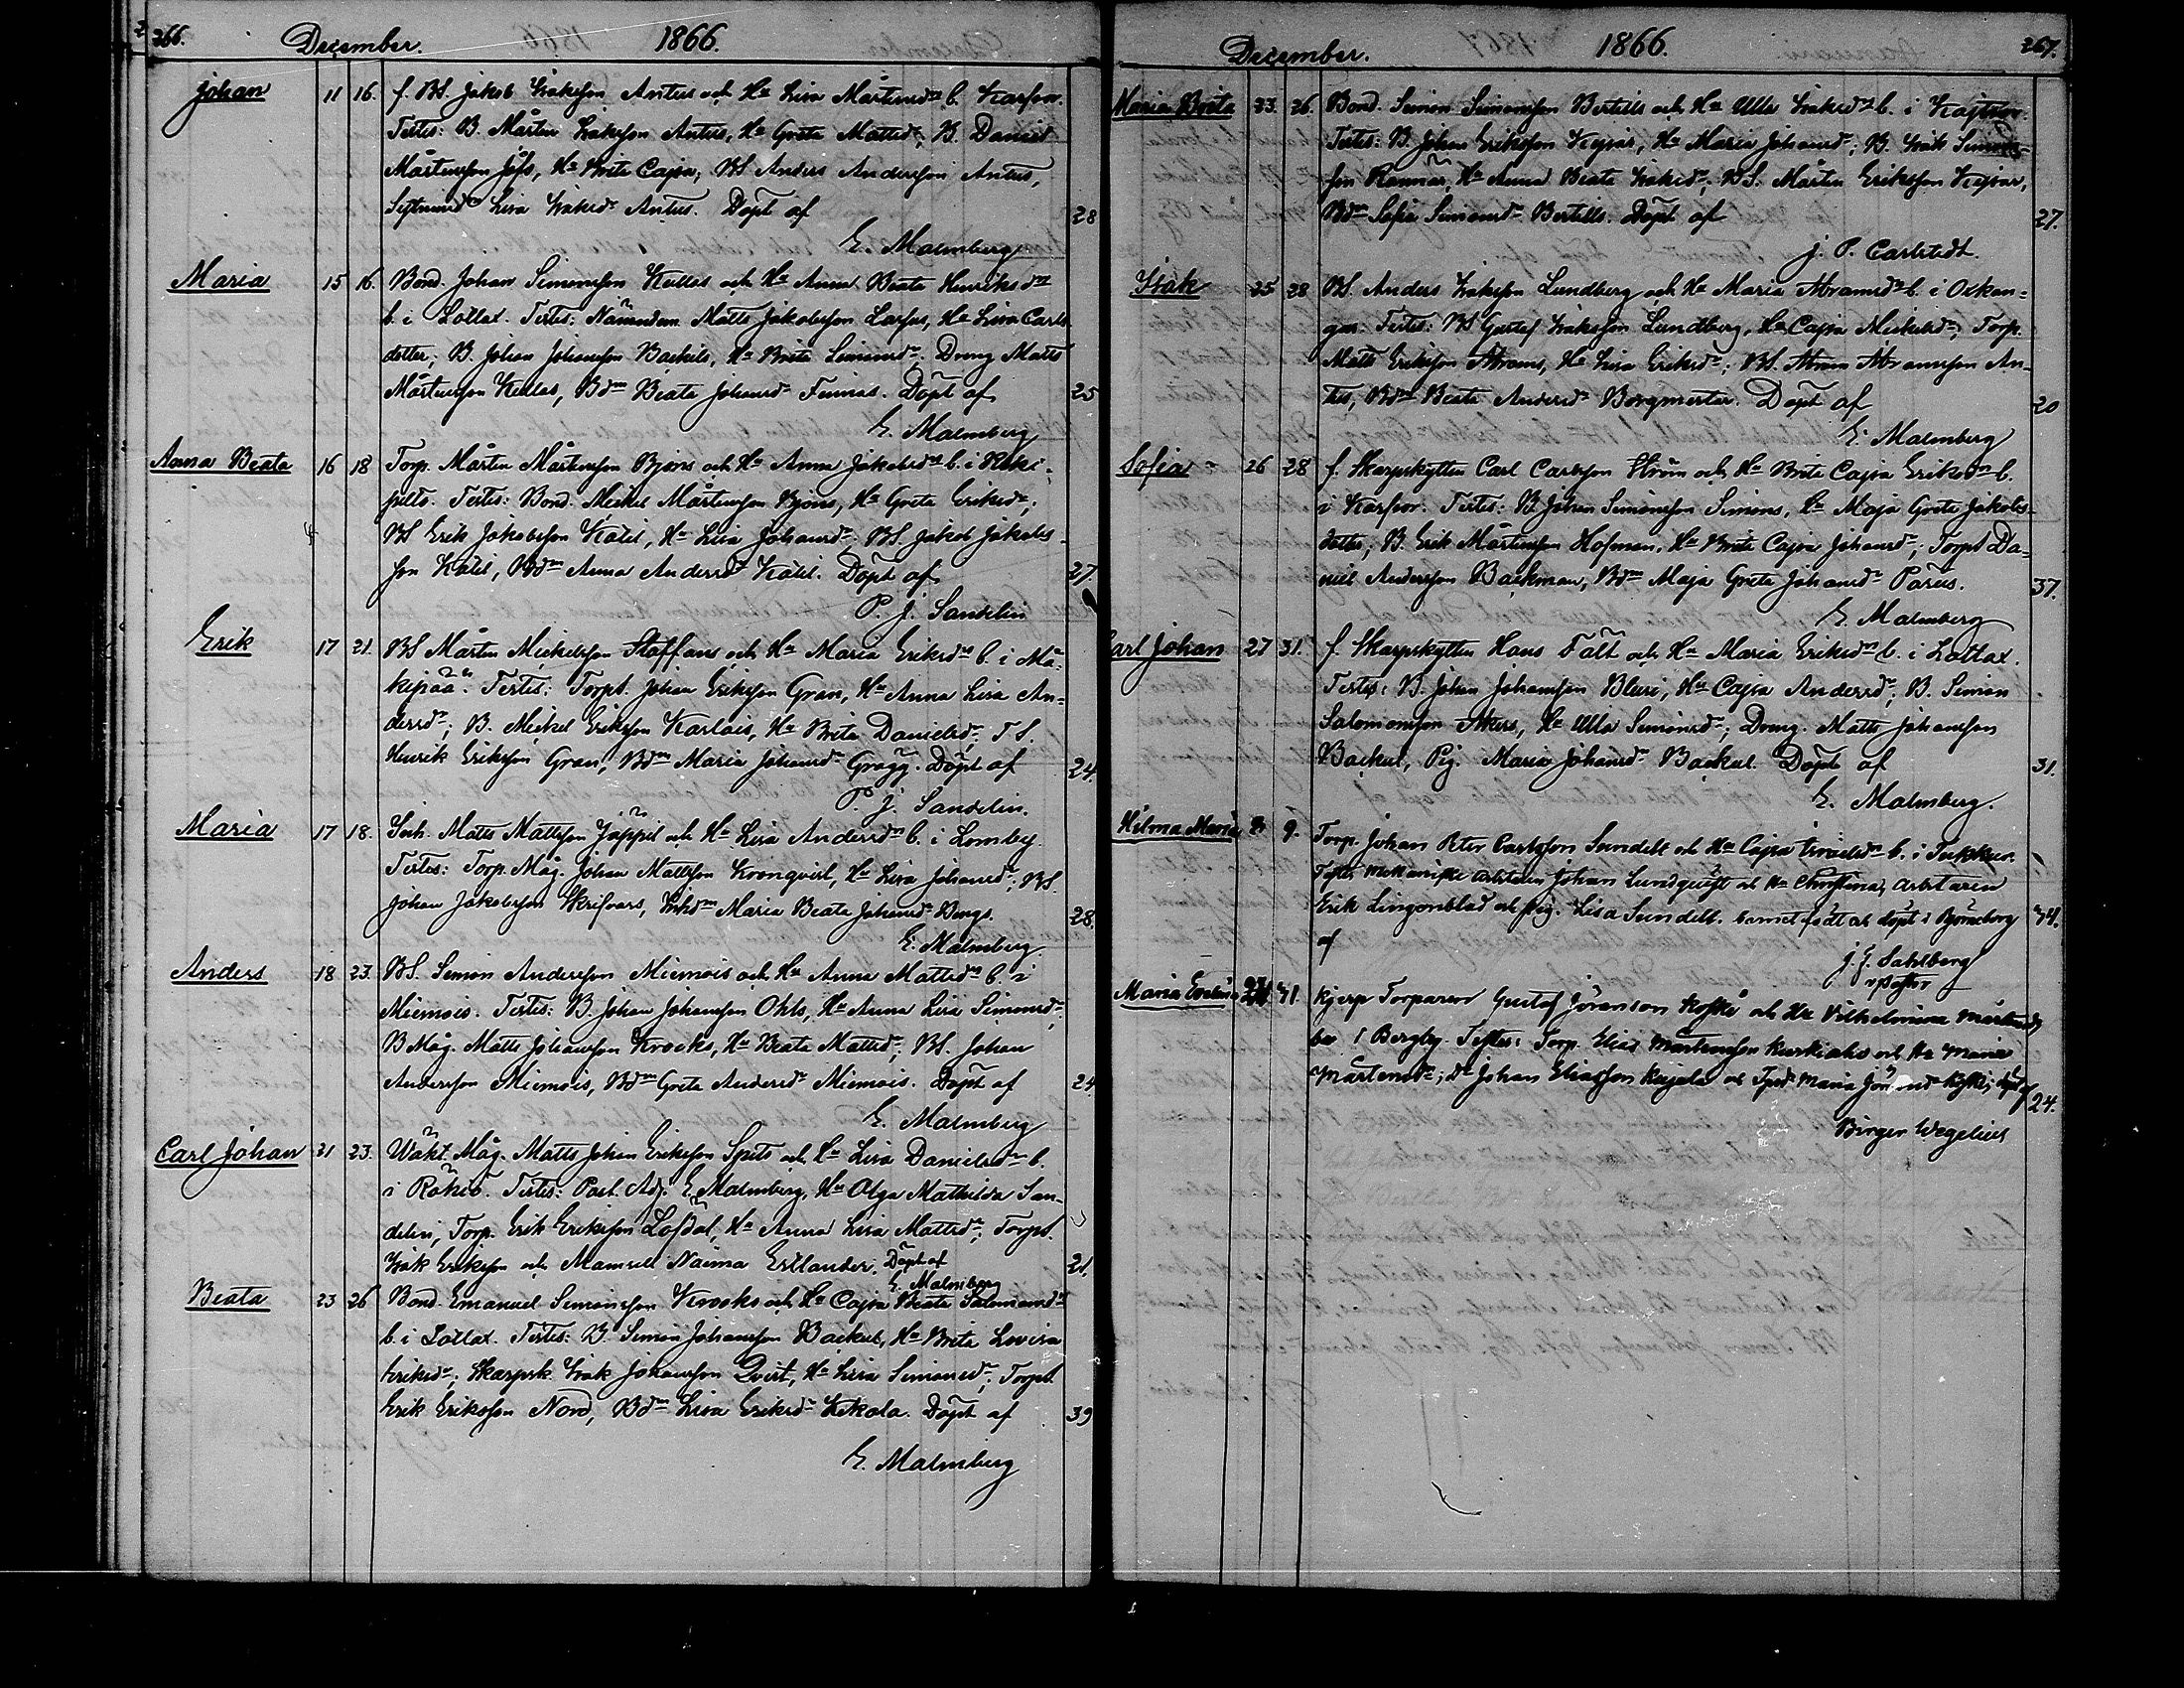 266. December. 1866.
Johan 11 16. f. BS. Jakob Isaksson Antus och Hu Lisa Mårtensdr b. Karfsor.
Testes: B. Mårten Isaksson Antus, Hu Greta Mattsdr; B. Daniel
Mårtensson Jåfs, Hu Brita Cajsa; BS Anders Andersson Antus,
Lisa Isaksdr Antus. Döpt af 28
E. Malmberg
Maria 15 16. Bond. Johan Simonsson Kullas och Hu Anna Beata Henriksdr
b. i Lottax. Testes: Nämndem. Matts Jakobsson Larfus, Hu Lisa Carls
dotter; B. Johan Johansson Backuls, Hu Brita Simonsdr; Dreng Matts
Mårtensson Kullas, Bdm Beata Johansdr Finnas. Döpt af 25
E. Malmberg
Anna Beata 16 18 Torp. Mårten Mårtensson Bjons och Hu Anna Jakobsdr b. i Röki-
pelto. Testes: Bond. Mickel Mårtensson Bjons, Hu Greta Eriksdr;
BS Erik Jakobsson Kätil, Hu Lisa Johansdr; BS. Jakob Jakobs-
son Kätil, Bdm Anna Andersdr Kätil. Döpt af 27.
P. J. Sandelin
Erik 17 21. BS Mårten Mickelsson Staffans och Hu Maria Eriksdr b. i Mä-
kipää. Testes: Torpt. Johan Eriksson Gran, Hu Anna Lisa An-
dersdr; B. Mickel Eriksson Karlois, Hu Brita Danielsdr; T S.
Henrik Eriksson Gran, Bdm Maria Johansdr Grägg. Döpt af 24.
P. J. Sandelin.
Maria 17 18. Inh. Matts Mattsson Jäppil och Hu Lisa Andersdr b. i Lomby.
Testes: Torp. Måg. Johan Mattsson Kronqvist, Hu Lisa Johansdr; BS.
Johan Jakobsson Skrifvars, Inhdm Maria Beata Johansdr Bengs. 28.
E. Malmberg
Anders 18 23. BS. Simon Andersson Miemois och Hu Anna Mattsdr b. i
Miemois. Testes: B. Johan Johansson Ohls, Hu Anna Lisa Simonsdr;
B Måg. Matts Johansson Krooks, Hu Beata Mattsdr; BS. Johan
Andersson Miemois, Bdm Greta Andersdr Miemois. Döpt af 24.
E. Malmberg
Carl Johan 21 23. Wäkt. Måg. Matts Johan Eriksson Spets och Hu Lisa Danielsdr b.
i Röksö. Testes: Past. Adj. E. Malmberg, Hu Olga Mathilda San-
delin, Torp. Erik Eriksson Löfdal, Hu Anna Lisa Mattsdr; Torpt.
Isak Eriksson och Mamsell Naima Estlander. Döpt af 21.
E. Malmberg
Beata 23 26 Bond. Emanuel Simonsson Krooks och Hu Cajsa Beata Salomonsdr
b. i Lottax. Testes: B. Simon Johansson Backul, Hu Brita Lovisa
Eriksdr; Skarpsk. Isak Johansson Qvist, Hu Lisa Simonsdr; Torpt.
Erik Eriksson Nord, Bdm Lisa Eriksdr Kekola. Döpt af 39
E. Malmberg
December. 1866. 267.
Maria Brita 23. 26. Bond. Simon Simonsson Bertills och Hu Ulla Isaksdr b. i Kafsnor.
Testes: B. Johan Eriksson Keysar, Hu Maria Johansdr; B. Isak Simons-
son Rönnar, Hu Anna Beata Isaksdr; BS. Mårten Eriksson Keysar,
Bdm Sofia Simonsdr Bertills. Döpt af 27.
J. P. Carlstedt.
Isak 25 28 BS. Anders Isaksson Lundberg och Hu Maria Abramsdr b. i Oxkan-
gar. Testes: BS Gustaf Isaksson Lundberg, Hu Cajsa Mickelsdr; Torp.
Matts Eriksson Abrams, Hu Lisa Eriksdr; BS. Abram Abramsson An-
tus, Bdm Beata Andersdr Borgmestar. Döpt af 20
E. Malmberg
Sofia 26 28 f. Skarpskytten Carl Carlsson Ström och Hu Brita Cajsa Eriksdr b.
i Karfsor. Testes: B. Johan Simonsson Simons, Hu Maja Greta Jakobs-
dotter; B. Erik Mårtensson Hofman, Hu Brita Cajsa Johansdr; Torpt Da-
niel Andersson Backman, Bdm Maja Greta Johansdr Parus. 37.
E. Malmberg
Carl Johan 27 31. f. Skarpskytten Hans Fält och Hu Maria Eriksdr b. i Lottax.
Testes: B. Johan Johansson Bluri, Hu Cajsa Andersdr; B. Simon
Salomonsson Akers, Hu Ulla Simonsdr; Dreng. Matts Johansson
Backul, Pig. Maria Johansdr Backul. Döpt af 31.
E. Malmberg.
Hilma Maria 9. Torp. Johan Peter Carlsson Sundell och Hu Cajsa Israelsdr b. i Tukkur.
Testes: Mekaniske arbetaren Johan Lundquist och Hu Christina; arbetaren
Erik Lingonblad och pig. Lisa Sundell. barnet född och döpt i Björneborg
af
J. F. Sahlberg
v pastor
Maria Evelina Torparen Gustaf Jöransson Koski och Hu Vilhelmina Mårtensdr
bo i Bergby. Testes: Torp. Elias Mårtensson Kurkiaho och Hu Maria
Mårtensdr; Dr Johan Eliasson Kujala och Tpdr Maria 24.
Birger Wegelius